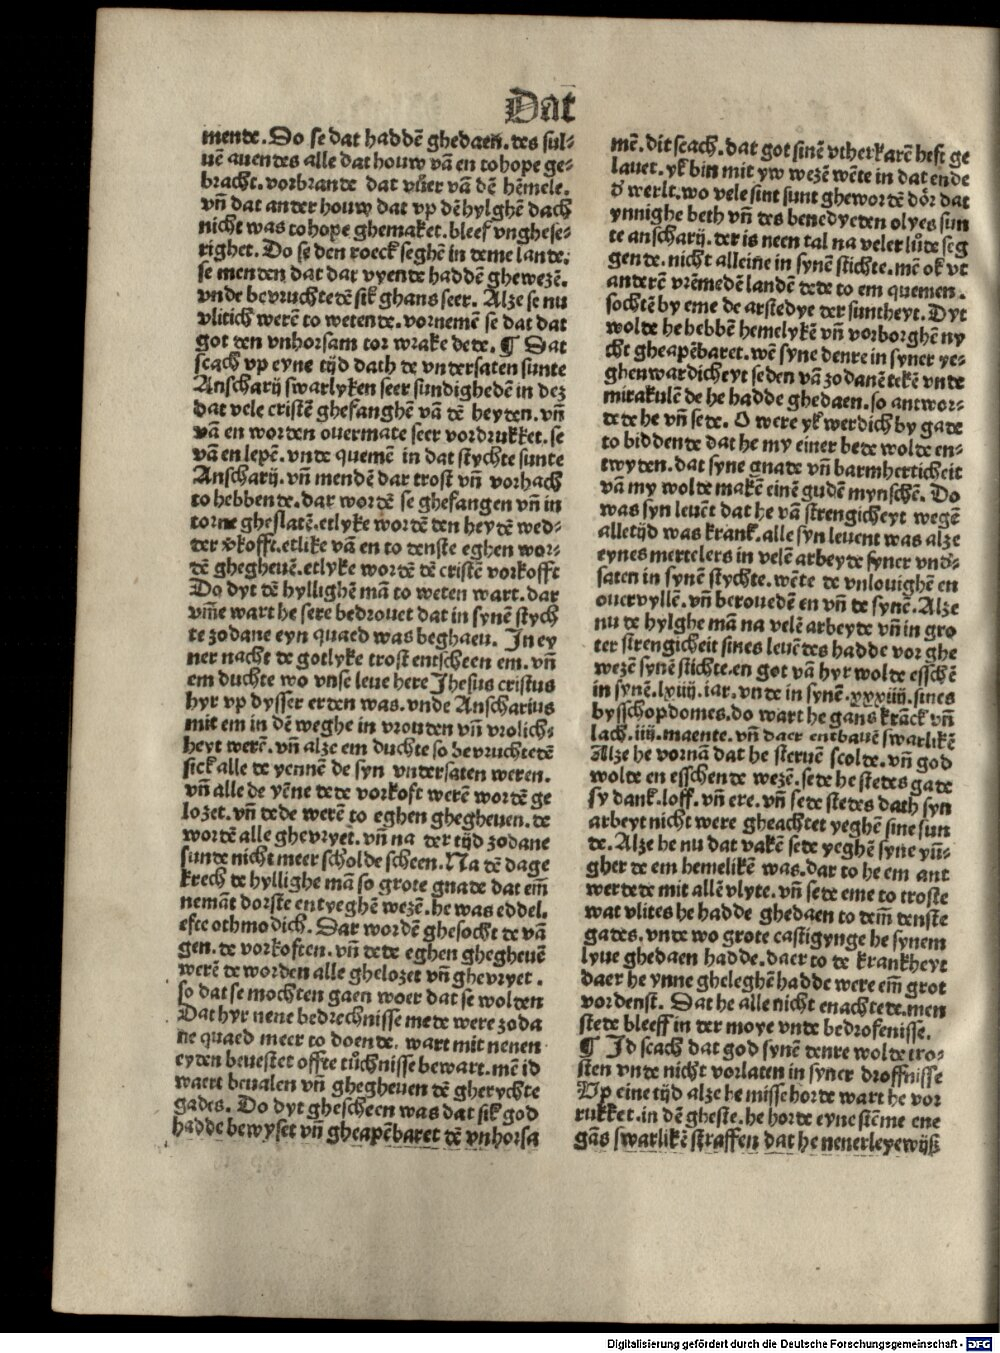 Dat
mende. Do se dat haddē ghedaen. des sul-
uē auendes alle dat houw vā en to hope ge-
bracht. vorbrande dat vůer vā dē hēmele.
vn̄ dat ander houw dat vp dē hylghē dach
nicht was to hope ghemaket. bleef vnghese-
righet. Do se den roeck seghē in deme lande.
se menden dat dar vyende haddē ghewezē.
vnde bevruchtedē sik ghans seer. Alze se nu
vlitich werē to wetende. vornemē se dat dat
got den vnhorsam tor wrake dede. ¶ Dat
scach vp eyne tijd dath de vndersaten sunte
Anscharij swarlyken seer sundighedē in dez
dat vele cristē ghefanghē vā dē heyden. vn̄
vā en worden ouermate seer vordrukket. se
vā en lepē. vnde quemē in dat stychte sunte
Anscharij. vn̄ mendē dar trost vn̄ vorhach
to hebbende. dar wordē se ghefangen vn̄ in
torne gheslatē. etlyke wordē den heydē wed-
der v̄kofft. etlike vā en to denste eghen wor-
dē ghegheuē. etlyke wordē dē cristē vorkofft
Do dyt dē hyllighē mā to weten wart. dar
vm̄e wart he sere bedrouet dat in synē stych
te zodane eyn quaed was beghaen. In ey
ner nacht de gotlyke trost entscheen em. vn̄
em duchte wo vnse leue here Jhesus cristus
hyr vp dysser erden was. vnde Anscharius
mit em in dē weghe in vrouden vn̄ vrolich-
heyt werē. vn̄ alze em duchte so bevruchtedē
sick alle de yennē de syn vndersaten weren.
vn̄ alle de yēne dede vorkoft werē wordē ge
lozet. vn̄ dede werē to eghen ghegheuen. de
wordē alle ghevryet. vn̄ na der tijd zodane
sunde nicht meer scholde scheen. Na dē dage
krech de hyllighe mā so grote gnade dat em̄
nemāt dorste entyeghē wezē. he was eddel.
efte othmodich. Dar wordē ghesocht de vā
gen. de vorkoften. vn̄ dede eghen ghegheuē
werē de worden alle ghelozet vn̄ ghevryet.
so dat se mochten gaen woer dat se wolden
Dat hyr nene bedrechnisse mede were zoda
ne quaed meer to doende. wart mit nenen
eyden beuestet offte tůchnisse bewart. mē id
waert beualen vn̄ ghegheuen dē gherychte
gades. Do dyt ghescheen was dat sik god
hadde bewyset vn̄ gheapēbaret dē vnhorsa
mē. dit scach. dat got sinē vtherkarē heft ge
lauet. yk bin mit yw wezē wēte in dat ende
d̕ werlt. wo vele sint sunt ghewordē dōr dat
ynnighe beth vn̄ des benedyeden olyes sun
te anscharij. der is neen tal na veler lůde seg
gende. nicht alleine in synē stichte. mē ok vt
anderē vrēmedē landē dede to em quemen.
sochtē by eme de arstedye der suntheyt. Dyt
wolde he hebbē hemelykē vn̄ vorborghē ny
cht gheapēbaret. wē syne denre in syner ye-
ghenwardicheyt seden vā zodanē tekē vnde
mirakulē de he hadde ghedaen. so antwor-
dede he vn̄ sede. O were yk werdich by gade
to biddende dat he my einer bede wolde en-
twyden. dat syne gnade vn̄ barmherticheit
vā my wolde makē einē gudē mynschē. Do
was syn leuēt dat he vā strengicheyt wegē
alletijd was krank. alle syn leuent was alze
eynes mertelers in velē arbeyde syner vnd̕-
saten in synē stychte. wēte de vnlouighē en
ouervyllē. vn̄ berouedē en vn̄ de synē. Alze
nu de hylghe mā na velē arbeyde vn̄ in gro
ter strengicheit sines leuēdes hadde vor ghe
wezē synē stichte. en got vā hyr wolde esschē
in synē. lxiiij. iar. vnde in synē. xxxiiij. sines
bysschopdomes. do wart he gans krāck vn̄
lach. iiij. maente. vn̄ daer enbauē swarlikē
Alze he vornā dat he steruē scolde. vn̄ god
wolde en esschende wezē. sede he stedes gade
sy dank. loff. vn̄ ere. vn̄ sede stedes dath syn
arbeyt nicht were gheachtet yeghē sine sun
de. Alze he nu dat vakē sede yeghē syne yū-
gher de em hemelikē was. dar to he em ant
werdede mit allē vlyte. vn̄ sede eme to troste
wat vlites he hadde ghedaen to dem̄ denste
gades. vnde wo grote castigynge he synem
lyue ghedaen hadde. daer to de krankheyt
daer he ynne gheleghē hadde were em̄ grot
vordenst. Dat he alle nicht enachtede. men
stede bleeff in der moye vnde bedrofenisse.
¶ Id scach dat god synē denre wolde tro-
sten vnde nicht vorlaten in syner droffnisse
Vp eine tijd alze he misse horde wart he vor
rukket. in dē gheste. he horde eyne stēme ene
gās swarlikē straffen dat he nenerleyewijß
Digitalisierung gefördert durch die Deutsche Forschungsgemeinschaft - DFG